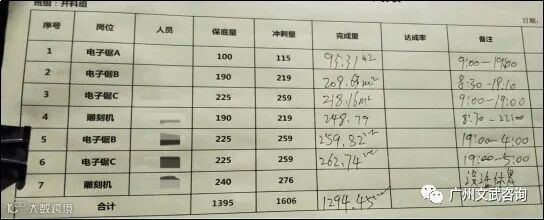 班组：开料组
日期：
序号 岗位 人员 保底量 冲刺量 完成量 达成率 备注
1 电子锯A 100 115 95.31m2 9:00-19:00
2 电子锯B 190 219 209.63m2 8:30-19:10
3 电子锯C 225 259 218.16m2 9:00-19:00
4 雕刻机 190 219 248.79 8:30-22:00
5 电子锯B 225 259 259.82m2 19:00-4:00
6 电子锯C 225 259 262.74m2 19:00-5:00
7 雕刻机 240 276
合计 1395 1606 1294.45m2
大数跨境
广州文武咨询